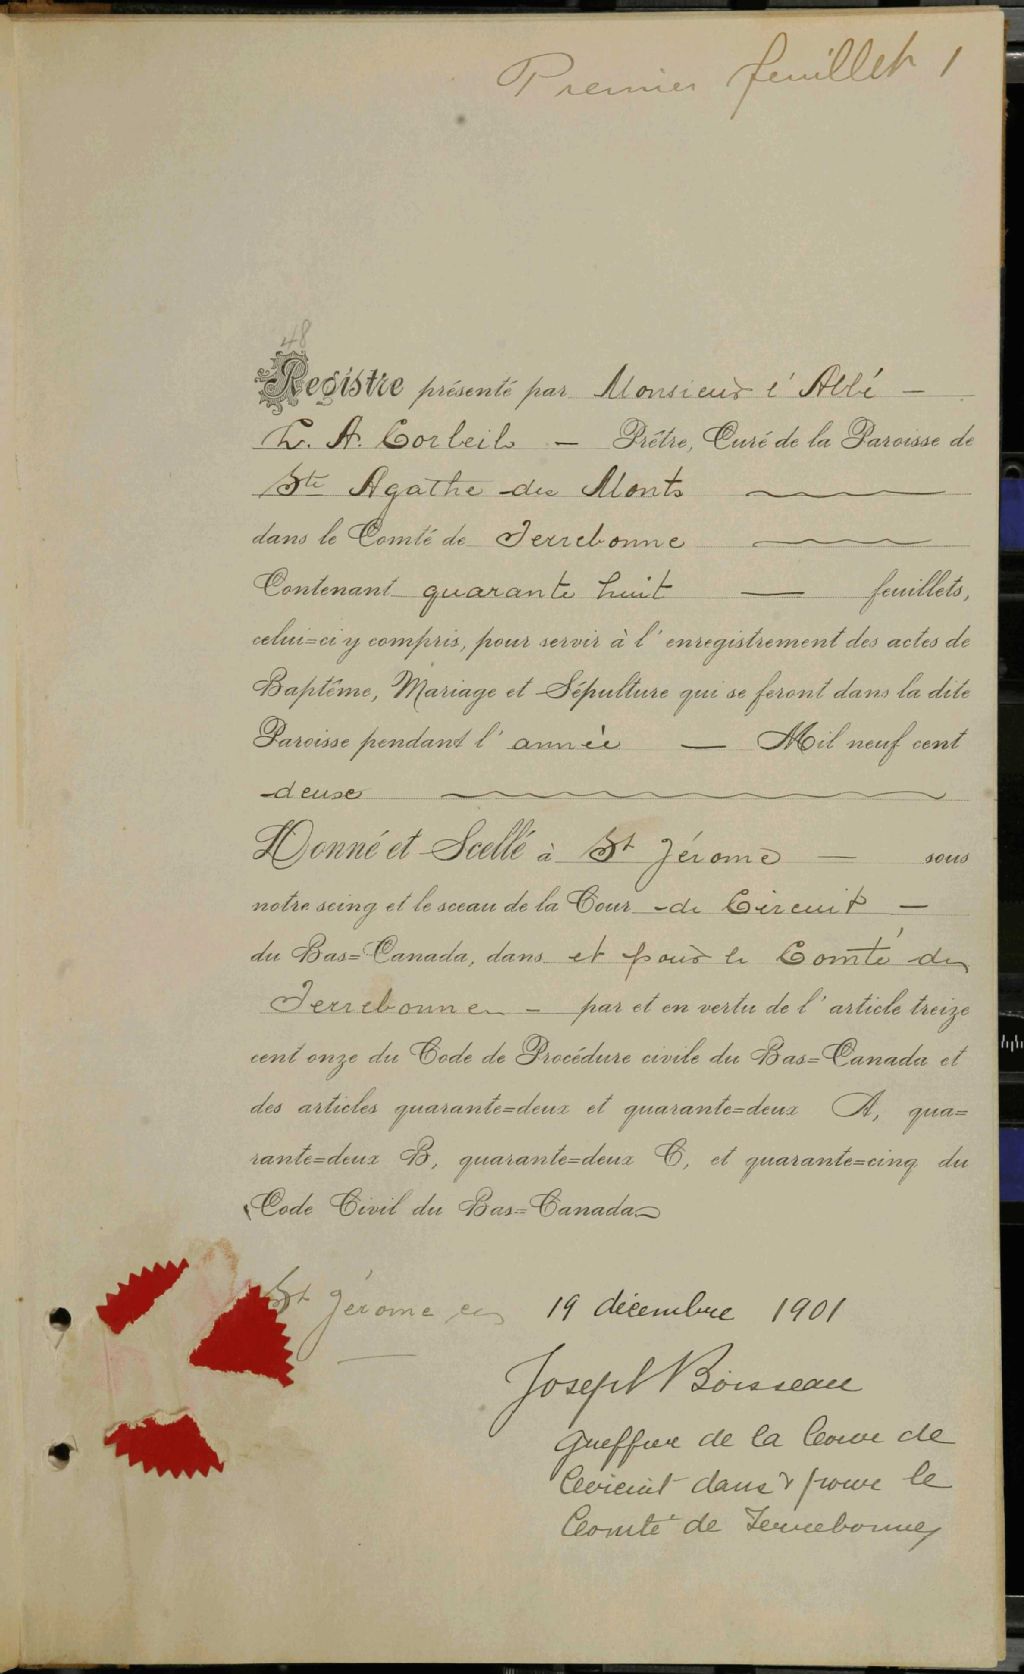 Premier feuillet 1
48
Registre présenté par Monsieur l'Abbé —
L. A. Corbeil — Prêtre, Curé de la Paroisse de
Ste Agathe des Monts
dans le Comté de Terrebonne
Contenant quarante huit — feuillets,
celui=ci y compris, pour servir à l'enregistrement des actes de
Baptême, Mariage et Sépulture qui se feront dans la dite
Paroisse pendant l'année — Mil neuf cent
deux
Donné et Scellé à St Jérome — sous
notre seing et le sceau de la Cour de Circuit —
du Bas=Canada, dans et pour le Comté de
Terrebonne — par et en vertu de l'article treize
cent onze du Code de Procédure civile du Bas=Canada et
des articles quarante=deux et quarante=deux A, qua=
rante=deux B, quarante=deux C, et quarante=cinq du
Code Civil du Bas=Canada
St Jérome ce 19 décembre 1901
Joseph Boisseau
Greffier de la Cour de
Circuit dans & pour le
Comté de Terrebonne